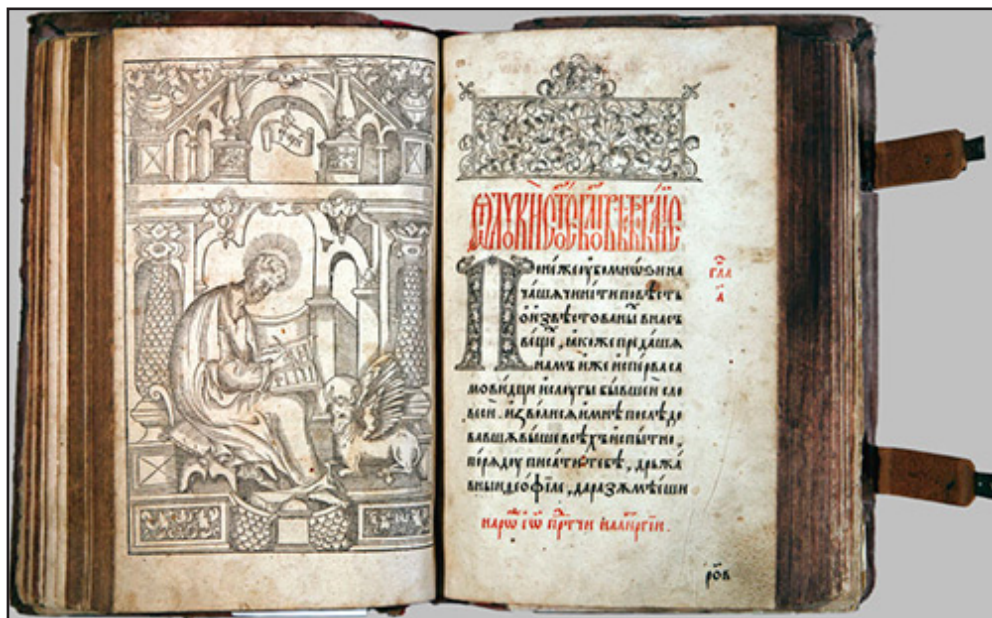 Ѿ ЛꙊКИ
Понеже оубо мнѡѕи на
чашѧ чинити повѣсть
ѡ извѣстованыⷯ в насъ
вещеⷯ, ꙗкоже предашѧ
намъ иже исперва са
мовидци и слоугы бывшеи сло
веси. изволисѧ и мнѣ послѣдо
вавшꙋ выше всѣхъ испытно,
порѧдоу писати тебѣ, дрьжа
вныи ѳеѡфїле, да разꙋмѣеши
гла
а҃